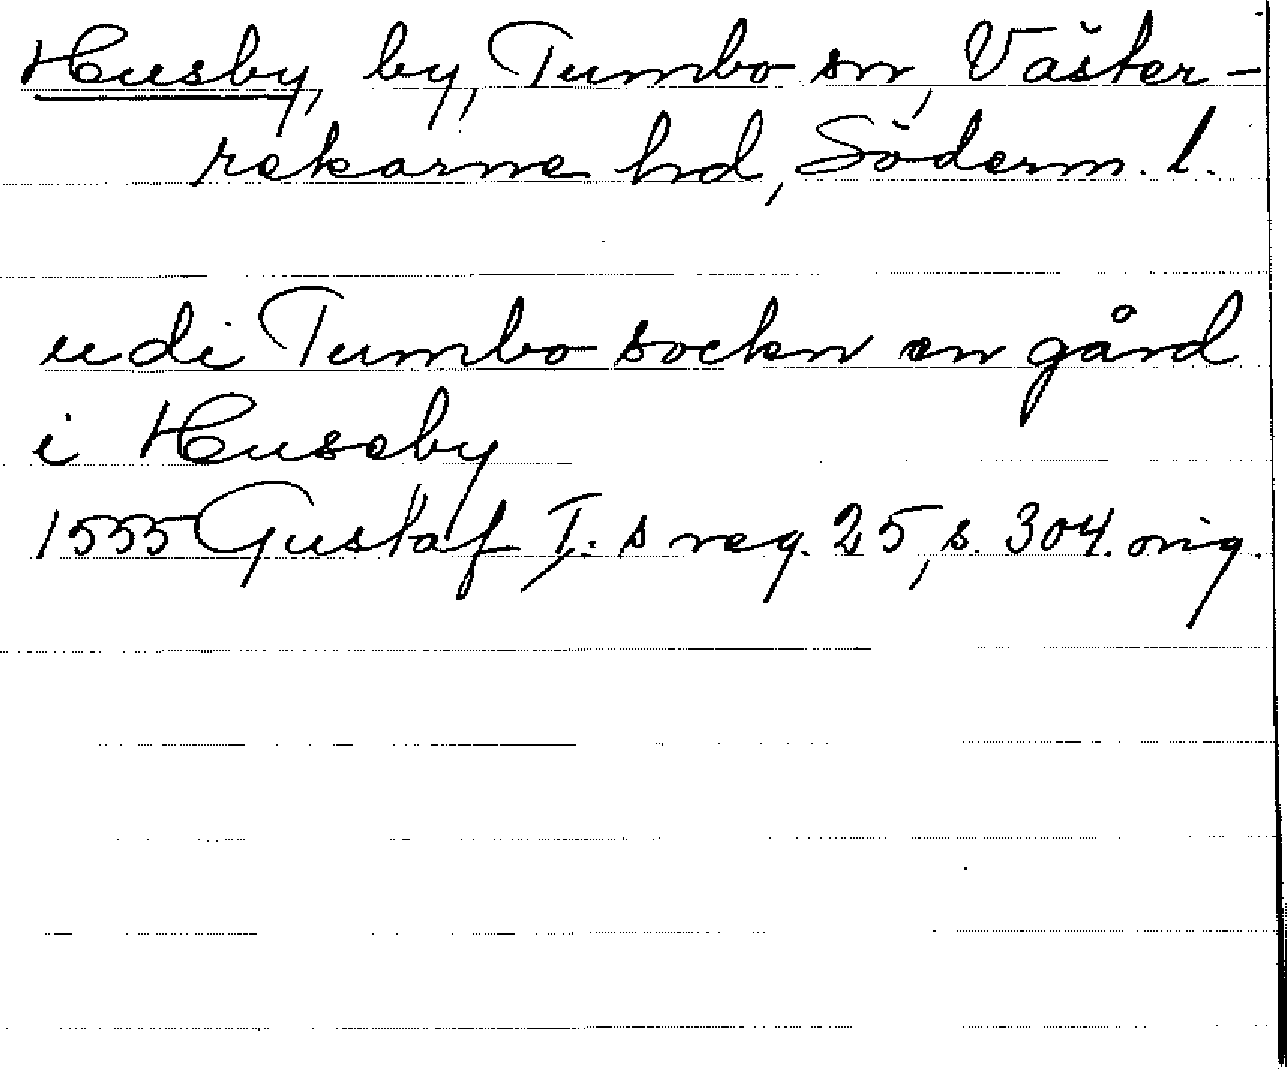 Husby, by, Tumbo sn, Väster-
rekarne hd, Söderm. l.
udi Tumbo sockn en gård
i Huseby
1555 Gustaf I:s reg. 25, s. 304. orig.